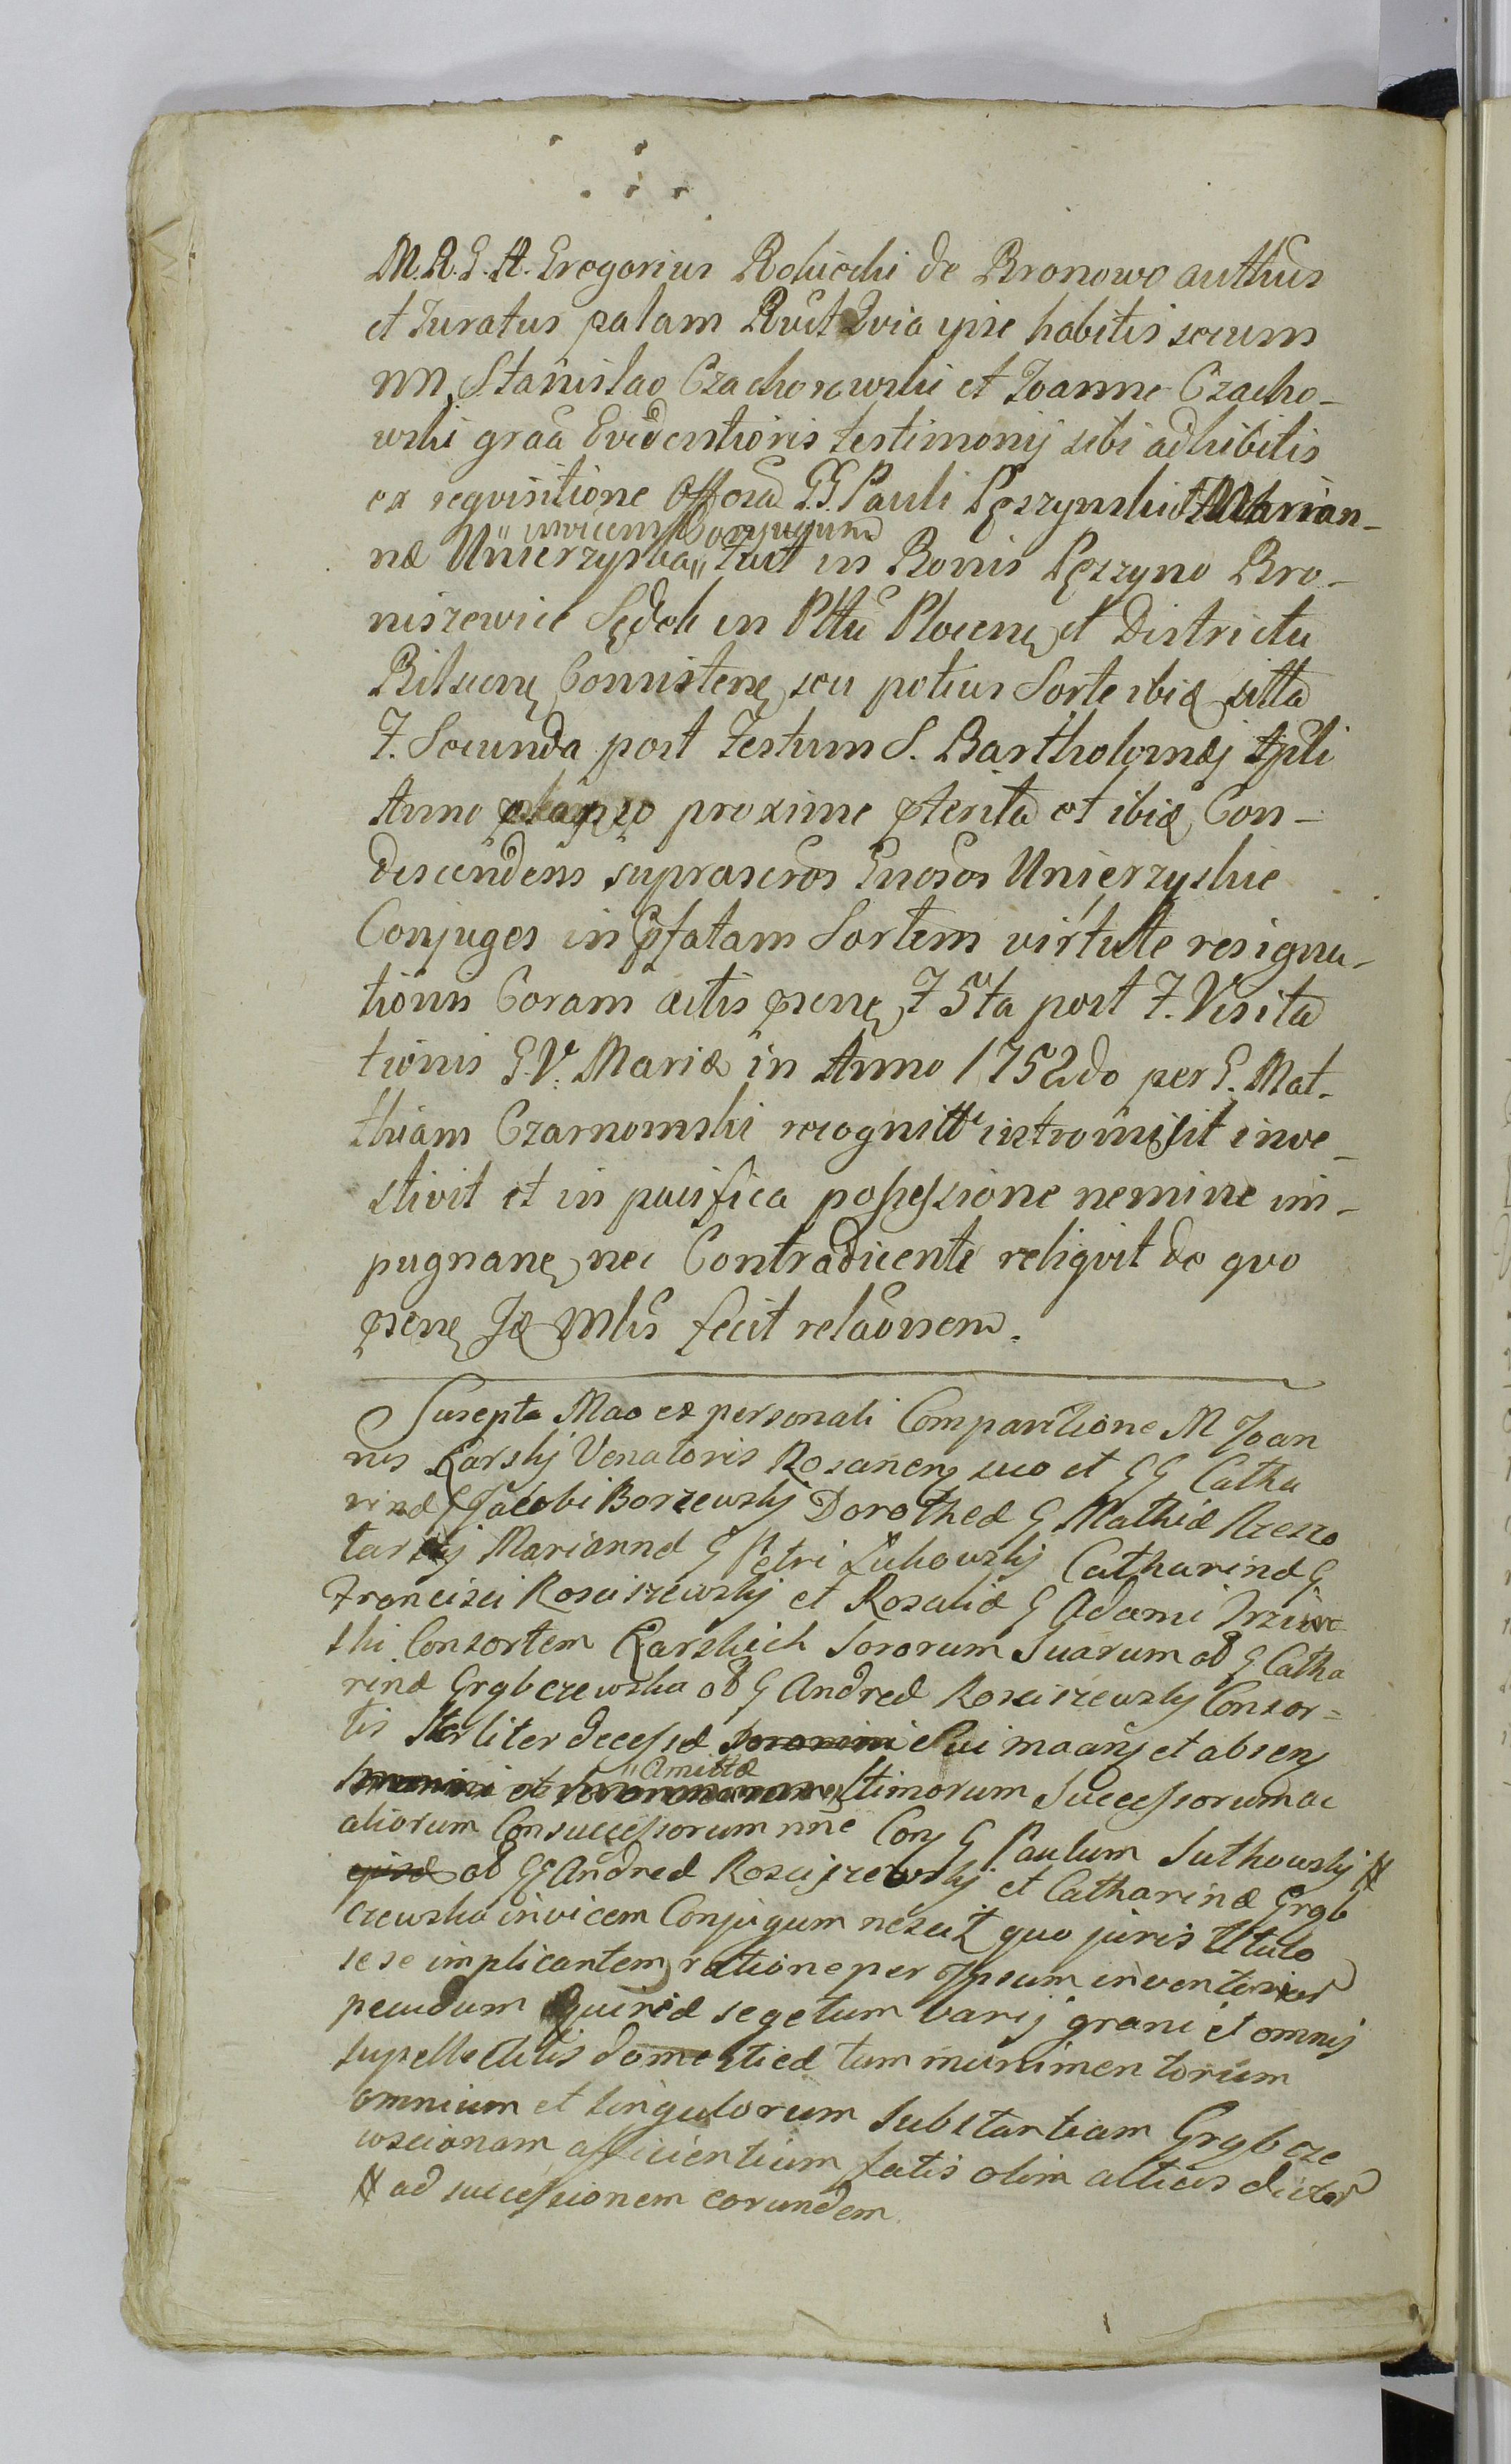 M.R.G.A. Gregorius Robiecki de Bronowo autthūs
et Juratus palam Rvit Qvia ipse habitis secum
NN. Stanislao Czachorowski et Joanne Czacho-
wski graā Evidentioris testimonij sibi adhibitis
ex reqvisitione Offosa GG Pauli Pęszynski et Marian-
næ Unierzyska "invicem Conjugum" fuit in Bonis Pęszyno Bro-
niszewice Sędek in Plttū Plocenę et Districtu
Bilscenę Connistenę seu potius Sorte ibidę sitta
F. Secunda post Festum S. Bartholomæj Apłi
Anno proxime pterita et ibidę Con-
descendens suprascros Gnosos Unierzyskie
Conjuges in pfatam Sortem virtute resigna-
tionis Coram actis psenę F 5ta post F. Visita
tionis B.V. Mariæ in Anno 1752do per G. Mat-
thiam Czarnomski recognitte intromisit inve-
stivit et in pacifica possessione nemine im-
pugnanę nec Contradicente reliqvit de qvo
psenę Idę Mlis fecit relaōnem.
Suscepta Mao ex personali Comparitione M Joan
nis Karskj Venatoris Rosanenę suo et GG Catha
rinæ G Jacobi Borzewskj Dorotheæ G Mathiæ Rzeszo
tarskj Mariannæ G Petri Żukowskj Catharinæ G
Francisci Rosciszewskj et Rosaliæ G Adami
ski Consortem Karskich Sororum Suarum ob G Catha
rinæ Grąbczewska ob G Andreæ Rosciszewskj Consor=
tis Sterliter decessæ et absenę
"Amittæ ltimorum Successorum ac
aliorum Consuccessorum nne Conę G Paulum Suthowskj #
ob GG Andreæ Rosciszewskj et Catharinæ Grąb
czewska invicem Conjugum nescit quo juris titulo
sese implicantem ratione per Ipsum inventarior
pecudum Equiriæ segetum varij grani et omnis
supellectilis domesticæ tum munimentorum
omnium et singulorum Substantiam Grąbcze
wscianam afficientium fatis olim alticis dictor
# ad successionem eorundem